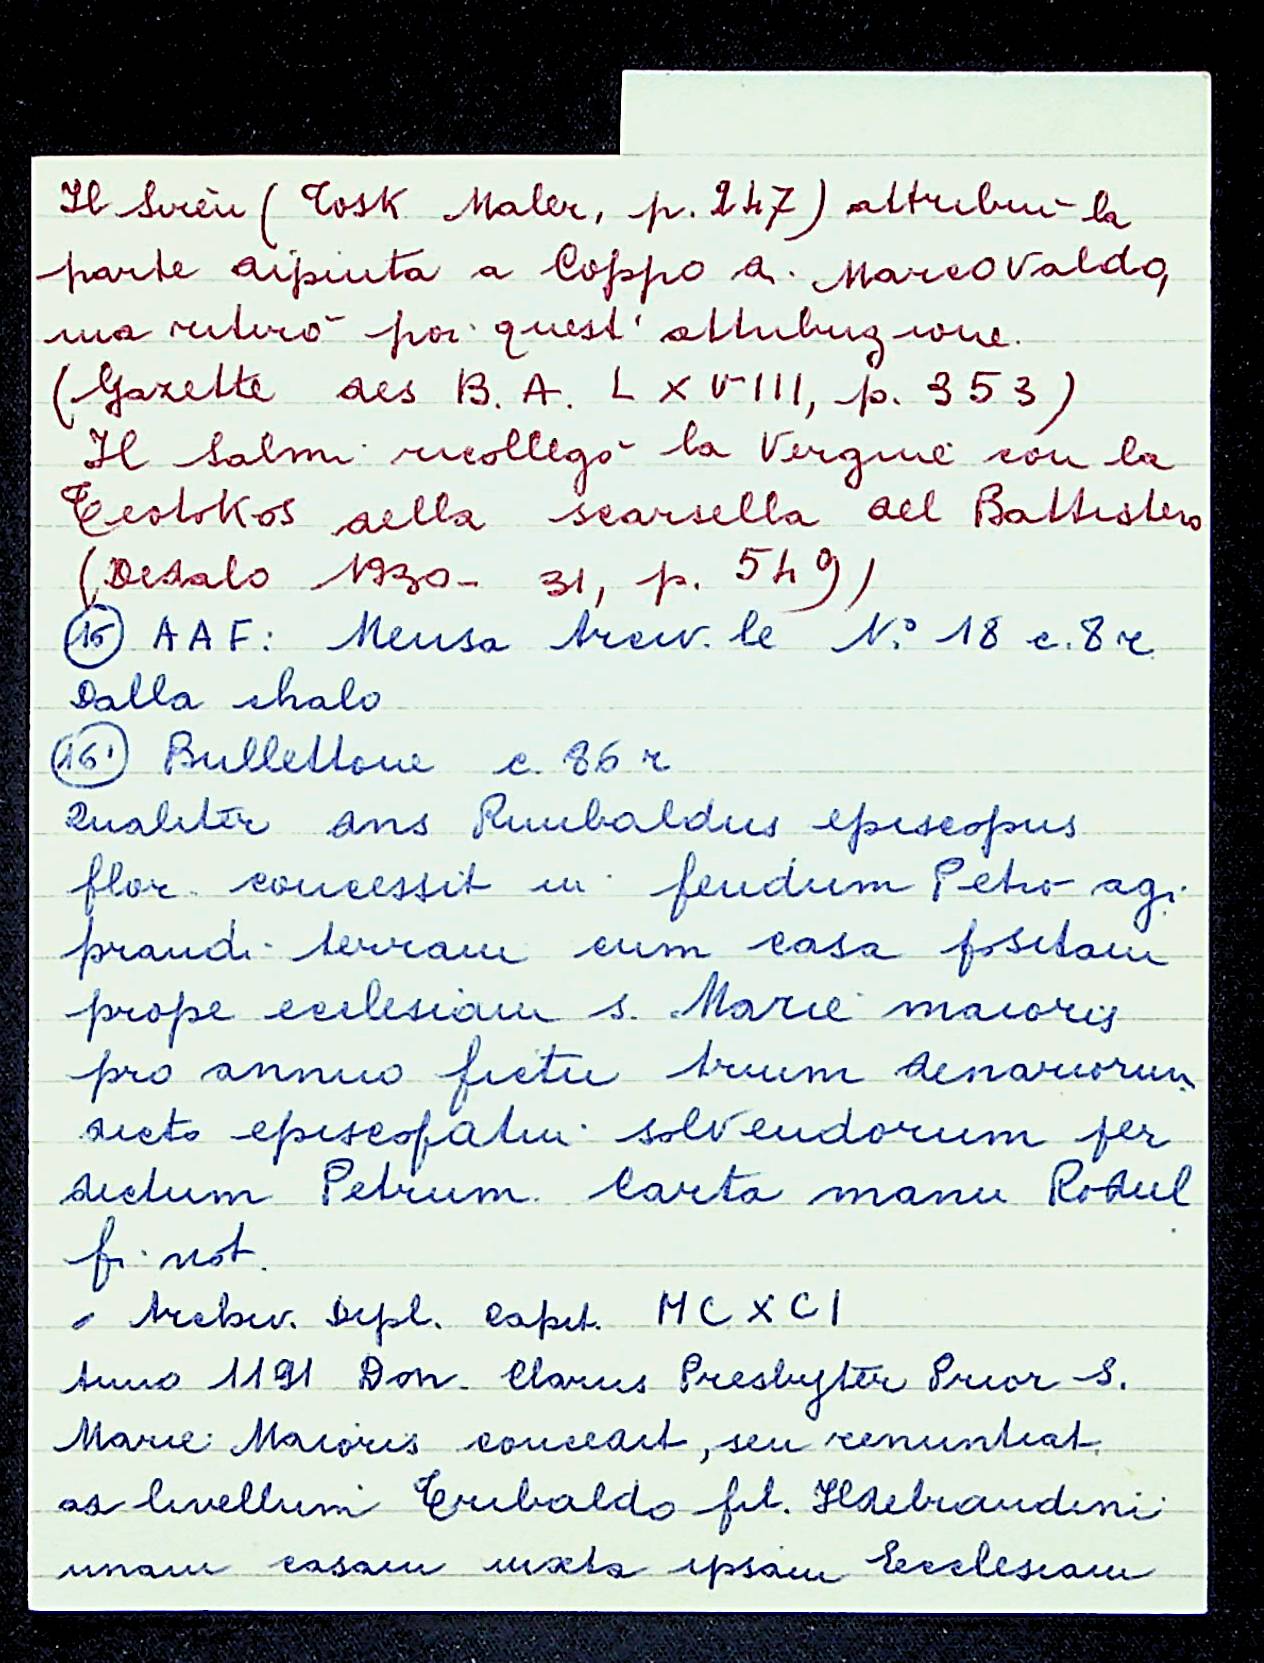 Il Sirèn (Tosk Maler, p. 247) attribuì la
parte dipinta a Coppo d. Marcovaldo,
ma ritirò poi quest'attribuzione.
(Gazette des B. A. LXVIII, p. 353)
Il Salmi ricollegò la Vergine con la
Teotokos della scarsella del Battistero
(Dedalo 1930-31, p. 549)
(15) AAF: Mensa Arciv.le N.° 18 c. 8 r
Dalla chalo
(16) Bullettone c. 86 r
Qualiter dns Rimbaldus episcopus
flor. concessit in feudum Petro agi
prandi terram cum casa positam
prope ecclesiam s. Marie maioris
pro annuo fictu trium denariorum
dicto episcopatui solvendorum per
dictum Petrum. Carta manu Rodul
fi not.
- Archiv. Dipl. Capit. MCXCI
Anno 1191 Don. Clarus Presbyter Prior S.
Marie Maioris concedit, seu renuntiat
ad livellum Teribaldo fil. Ildebrandini
unam casam iuxta ipsam Ecclesiam